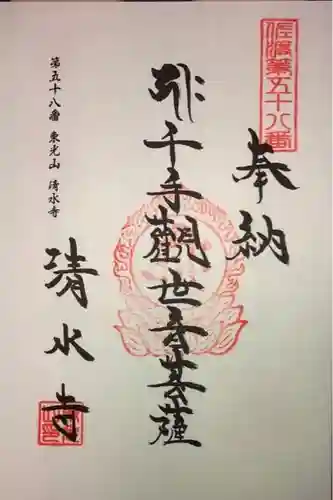 佐渡第五十八番
奉納
千手觀世音菩薩
第五十八番 東光山 清水寺
清水寺